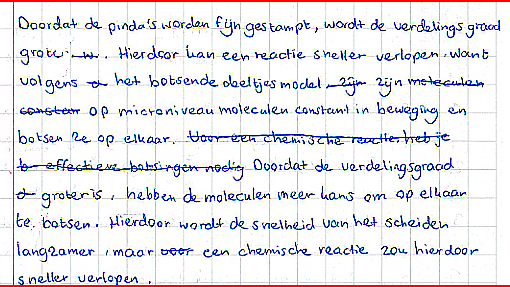 Doordat de pinda's worden fijn gestampt, wordt de verdelingsgraad
groter. Hierdoor kan een reactie sneller verlopen. Want
volgens het botsende deeltjes model zijn zijn moleculen
constan op microniveau moleculen constant in beweging en
botsen ze op elkaar. Voor een chemische reactie heb je
effectieve botsingen nodig Doordat de verdelingsgraad
groter is, hebben de moleculen meer kans om op elkaar
te botsen. Hierdoor wordt de snelheid van het scheiden
langzamer, maar voor een chemische reactie zou hierdoor
sneller verlopen.